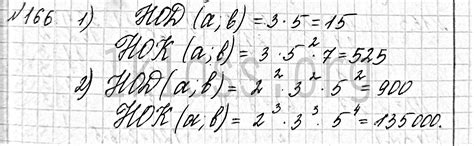 №166 1) НОД (а; в) = 3 · 5 = 15
НОК (а; в) = 3 · 5² · 7 = 525
2) НОД (а; в) = 2² · 3² · 5² = 900
НОК (а; в) = 2³ · 3³ · 5⁴ = 135000.